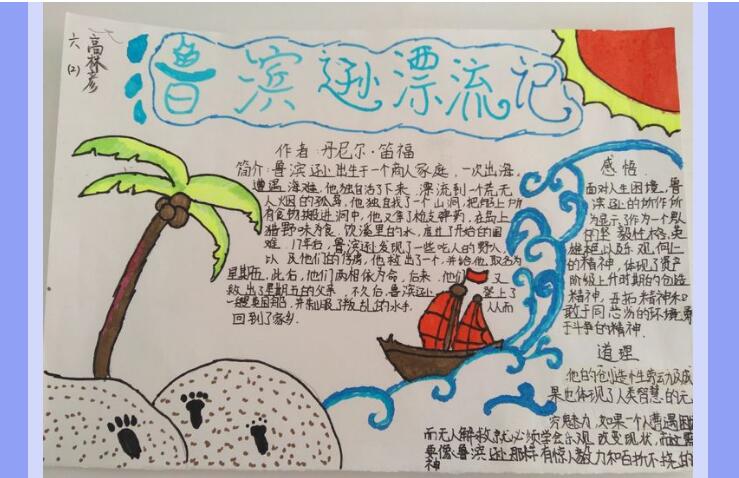 六(2) 高林彦
鲁滨逊漂流记
作者:丹尼尔·笛福
简介:鲁滨逊出生于一个商人家庭,一次出海,
遭遇海难,他独自活了下来,漂流到一荒无
人烟的孤岛,他独自找了一个山洞,把船上所
有食物搬进洞中,他又拿了枪支弹药,在岛上
猎野味为食,饮溪里的水,度过了开始的困
难.17年后,鲁滨逊发现了一些吃人的野人,
以及他们的俘虏,他救出了一个,并给他取名为
星期五,此后,他们两相依为命,后来,他们又
救出了星期五的父亲 不久后,鲁滨逊登上了
一艘英国船,并制服了叛乱的水手,人而
回到了家乡.
感悟
面对人生困境,鲁
滨逊的所作所
为显示了作为一个男人
的坚毅性格,英
雄本色以及乐观向上
的精神,体现了资产
阶级上升时期的创造
精神,开拓精神和
敢于同恶劣的环境勇
于斗争的精神.
道理
他的创造性劳动及成
果也体现了人类智慧的无
穷魅力,如果一个人遭遇困
而无人解救就必须学会乐观 改变现状,而这
要像鲁滨逊那样有惊人毅力和百折不挠的
神